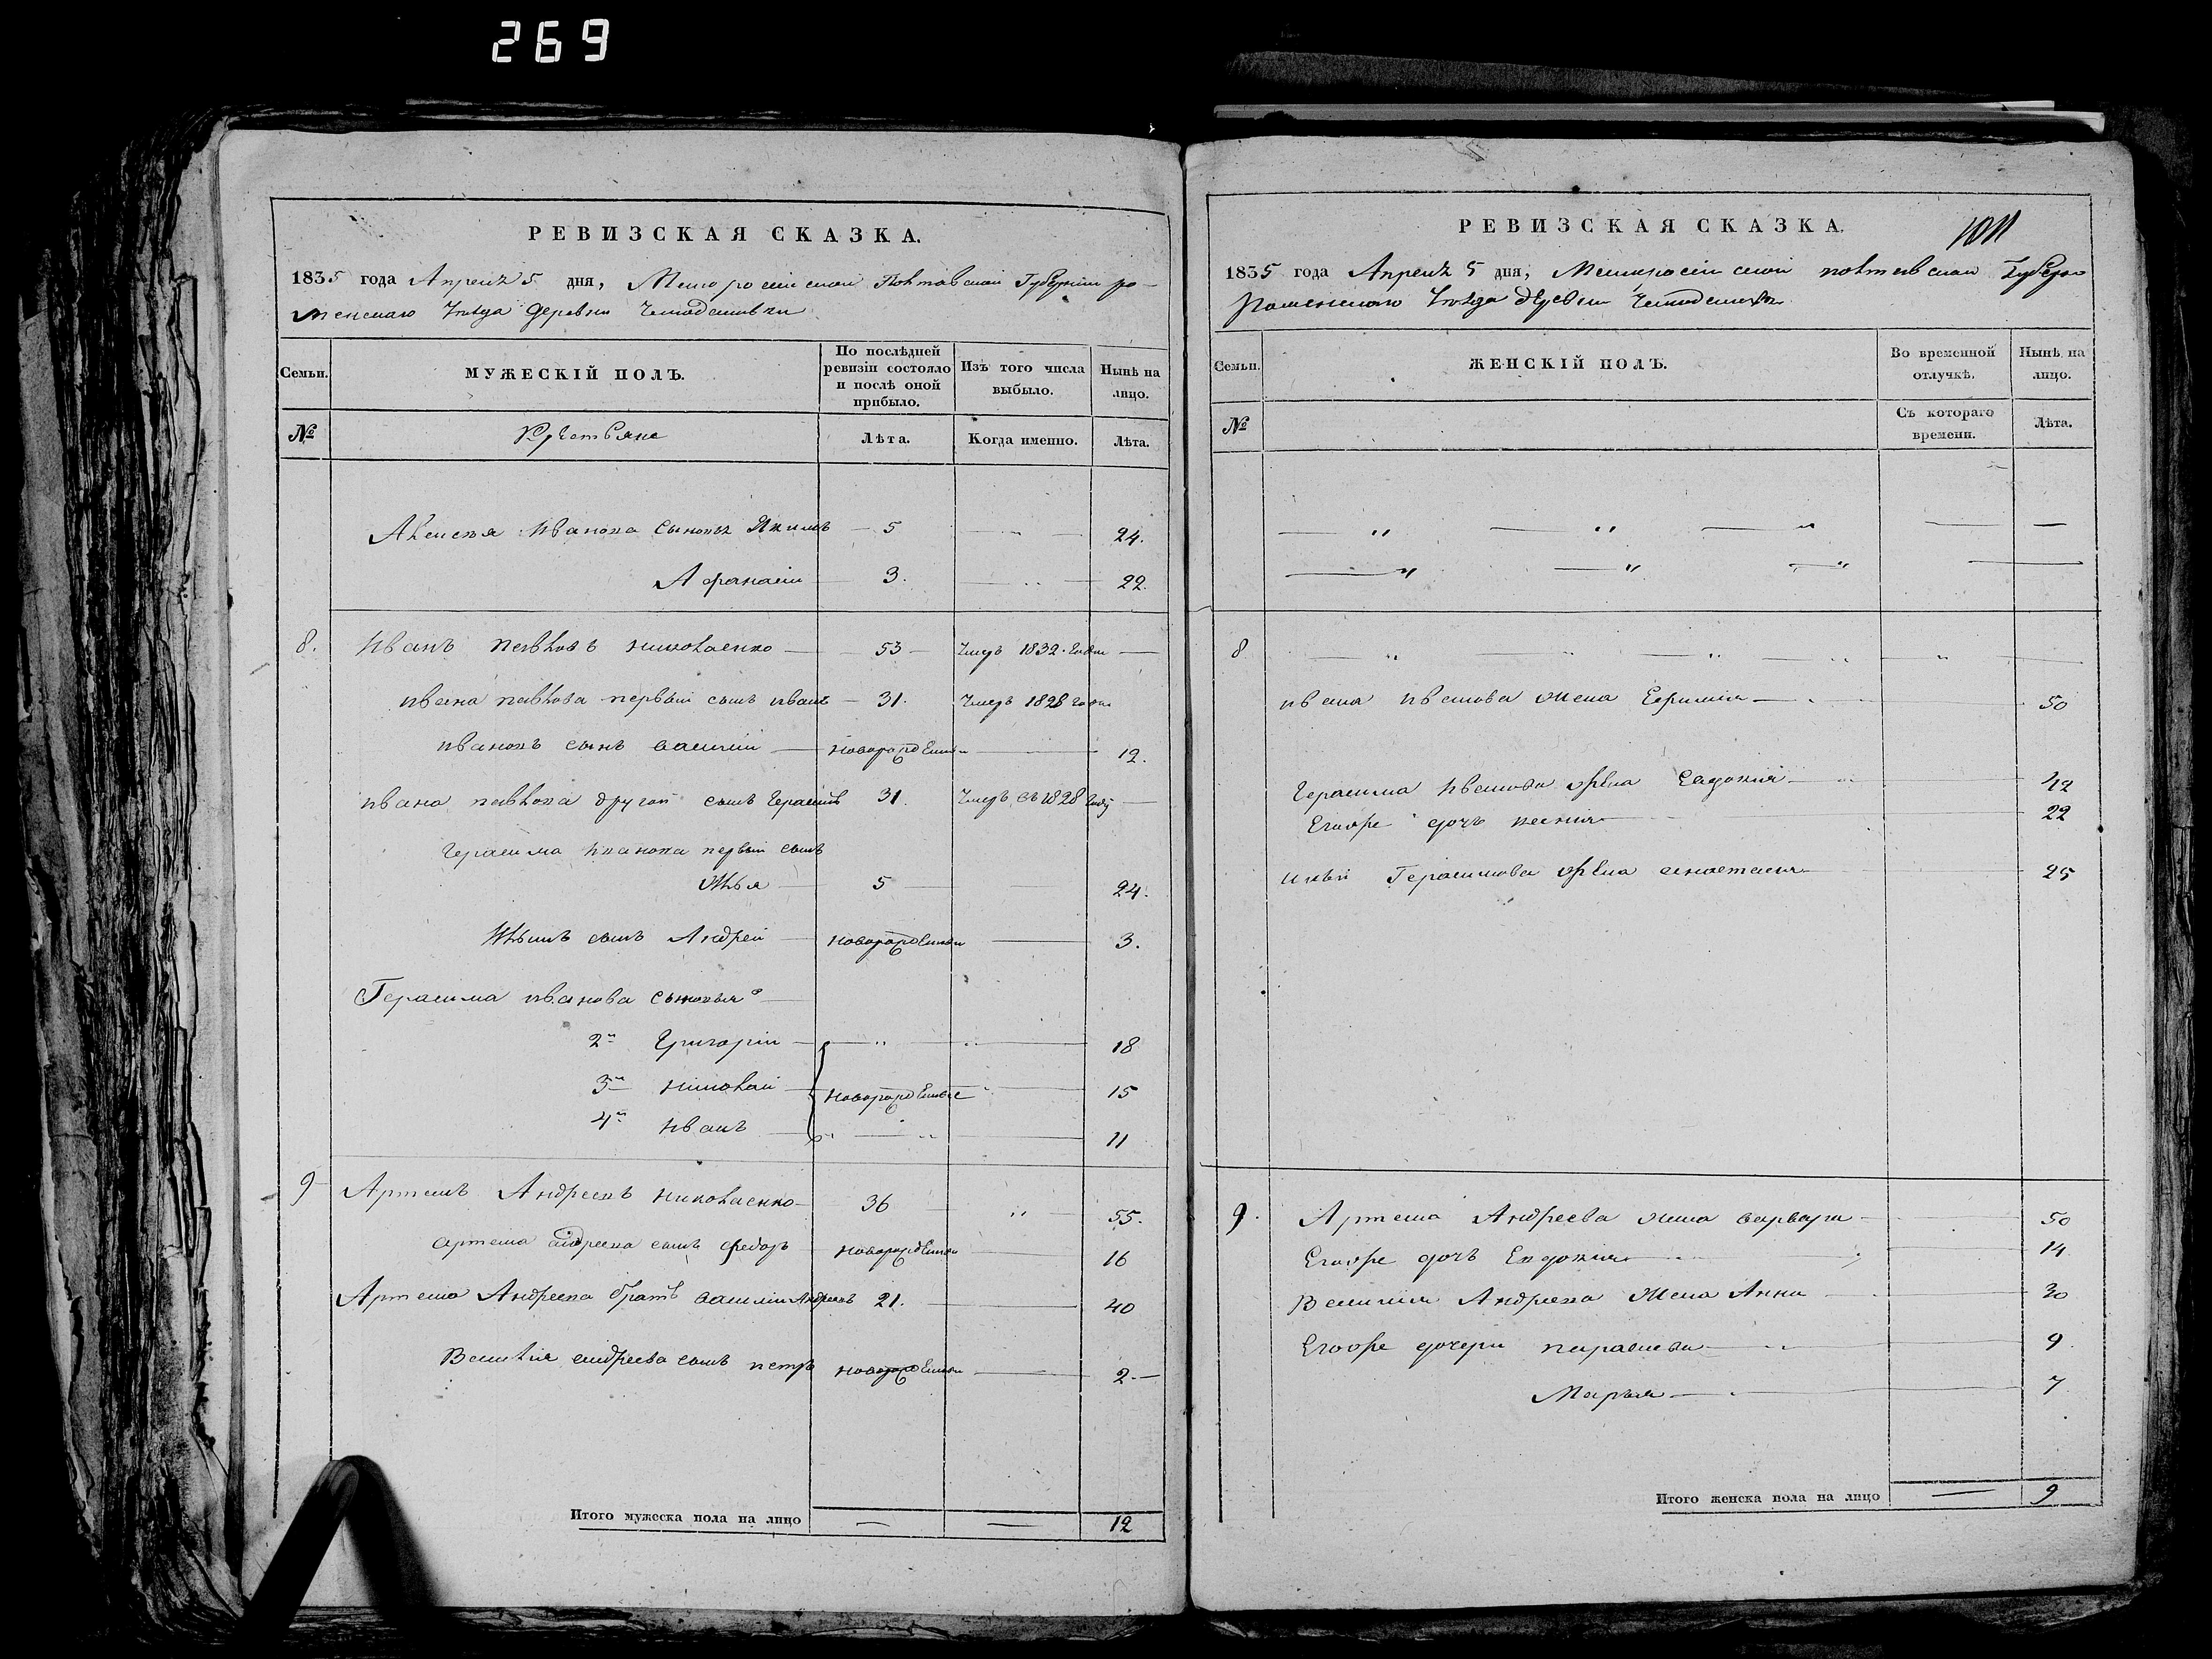 269
РЕВИЗСКАЯ СКАЗКА.
1835 года Апреля 5 дня, Малороссійской Полтавской Губерніи ро-
менскаго Уезда деревни
Семьи.
МУЖЕСКІЙ ПОЛЪ.
По послѣдней ревизіи состояло и послѣ оной прибыло.
Изъ того числа выбыло.
Нынѣ на лицо.
№
Крестьяне
Лѣта.
Когда именно.
Лѣта.
Алексея Иванова сыновья Якимъ — 5 — 24.
Афанасій — 3. — 22.
8. Иванъ Павловъ Николаенко — 53 — Умеръ 1832. Года —
Ивана Павлова первый сынъ Иванъ — 31. Умеръ 1828 года
Ивановъ сынъ Василій — новорожденый — 12.
Ивана Павлова другой сынъ Герасимъ 31. Умеръ въ 1828 году —
Герасима Иванова первый сынъ
Илья — 5 — 24.
Ильинъ сынъ Андрей — новорожденый — 3.
Герасима Иванова сыновья
2й Григорій — " — 18
3й Николай — новорожденые — 15
4й Иванъ — " — 11
9 Артемъ Андреевъ Николаенко — 36 " 55.
Артема Андреева сынъ Федоръ новорожденый 16
Артема Андреева братъ Василій Андреевъ 21. — 40
Василія Андреева сынъ Петръ новорожденый — 2. —
Итого мужеска пола на лицо — — 12
РЕВИЗСКАЯ СКАЗКА.
1011
1835 года Апреля 5 дня, Малоросійской Полтавской Губерніи
Роменскаго Уезда деревни
Семьи.
ЖЕНСКІЙ ПОЛЪ.
Во временной отлучкѣ.
Нынѣ на лицо.
№
Съ котораго времени.
Лѣта.
— " — " — " — —
— " — " — " —
8 — " — " — " — " — " —
Ивана Иванова жена Ефимія — 50
Герасима Иванова жена Евдокия — 42
Егоже дочь Ксенія — 22
Ильи Герасимова жена Анастасия 25
9. Артема Андреева жена Варвара — 50
Егоже дочь Евдокия — 14
Василия Андреева жена Анна — 30
Егоже дочери Параскева — 9
Марья — 7
Итого женска пола на лицо — 9